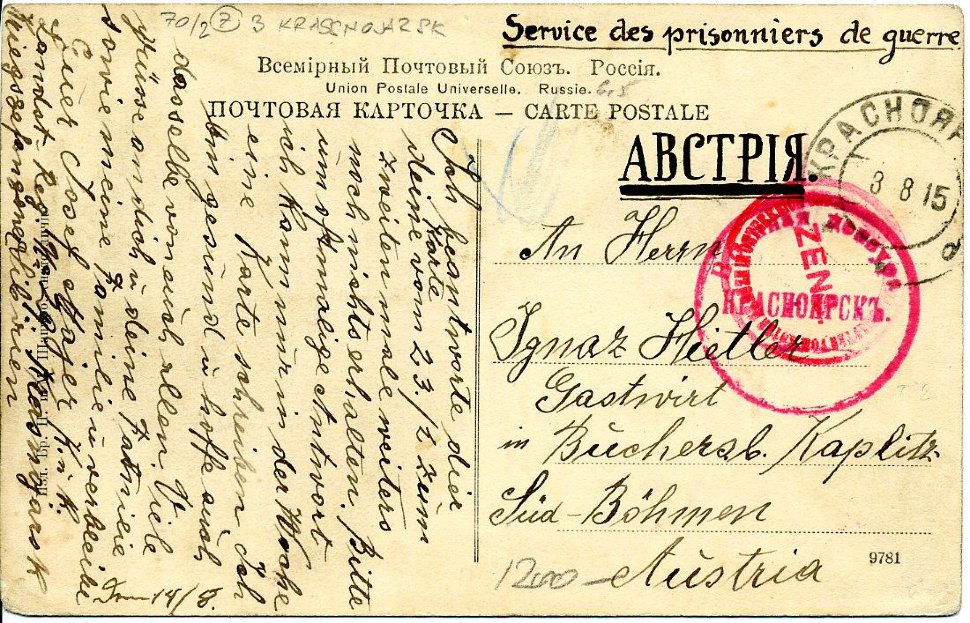 70/2 Z 3 KRASSNOJARSK
Service des prisonniers de guerre
Всемірный Почтовый Союзъ. Россія.
Union Postale Universelle. Russie.
ПОЧТОВАЯ КАРТОЧКА — CARTE POSTALE
АВСТРІЯ.
КРАСНОЯР
3 8 15
ZEN
КРАСНОЯРСКЪ.
An Herrn
Ignaz Hietler
Gastwirt
in Büchersb. Kaplitz
Süd-Böhmen
Austria
1200
9781
Ich beantworte dier
deine Karte vom 23./2 zum
zweiten male weiters
noch nichts erhalten. Bitte
um Antwort
ich kann nur in der Woche
eine Karte schreiben. Ich
bin gesund u hoffe auch
dasselbe von euch allen. Viele
Grüsse an dich u deine Familie
sowie meine Familie u verbleibe
Euer Josef Majer K. u. K.
Landst. Reg.
Kriegsgefangener in Sibirien